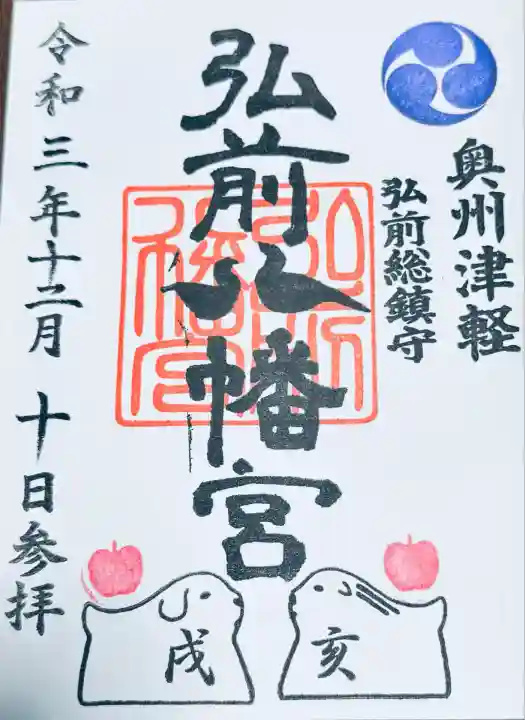 奥州津軽
弘前総鎮守
弘前八幡宮
弘前八幡宮
令和三年十二月十日参拝
戌
亥